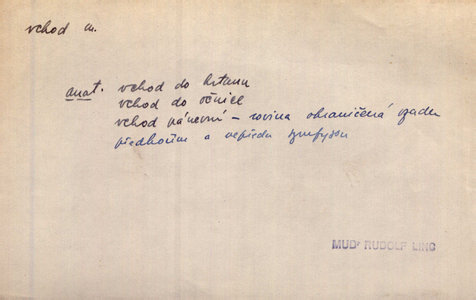 vchod m.
anat. vchod do hrtanu
vchod do očnice
vchod pánevní – rovina ohraničená vzadu
předhořím a vepředu symfysou
MUDr RUDOLF LINC